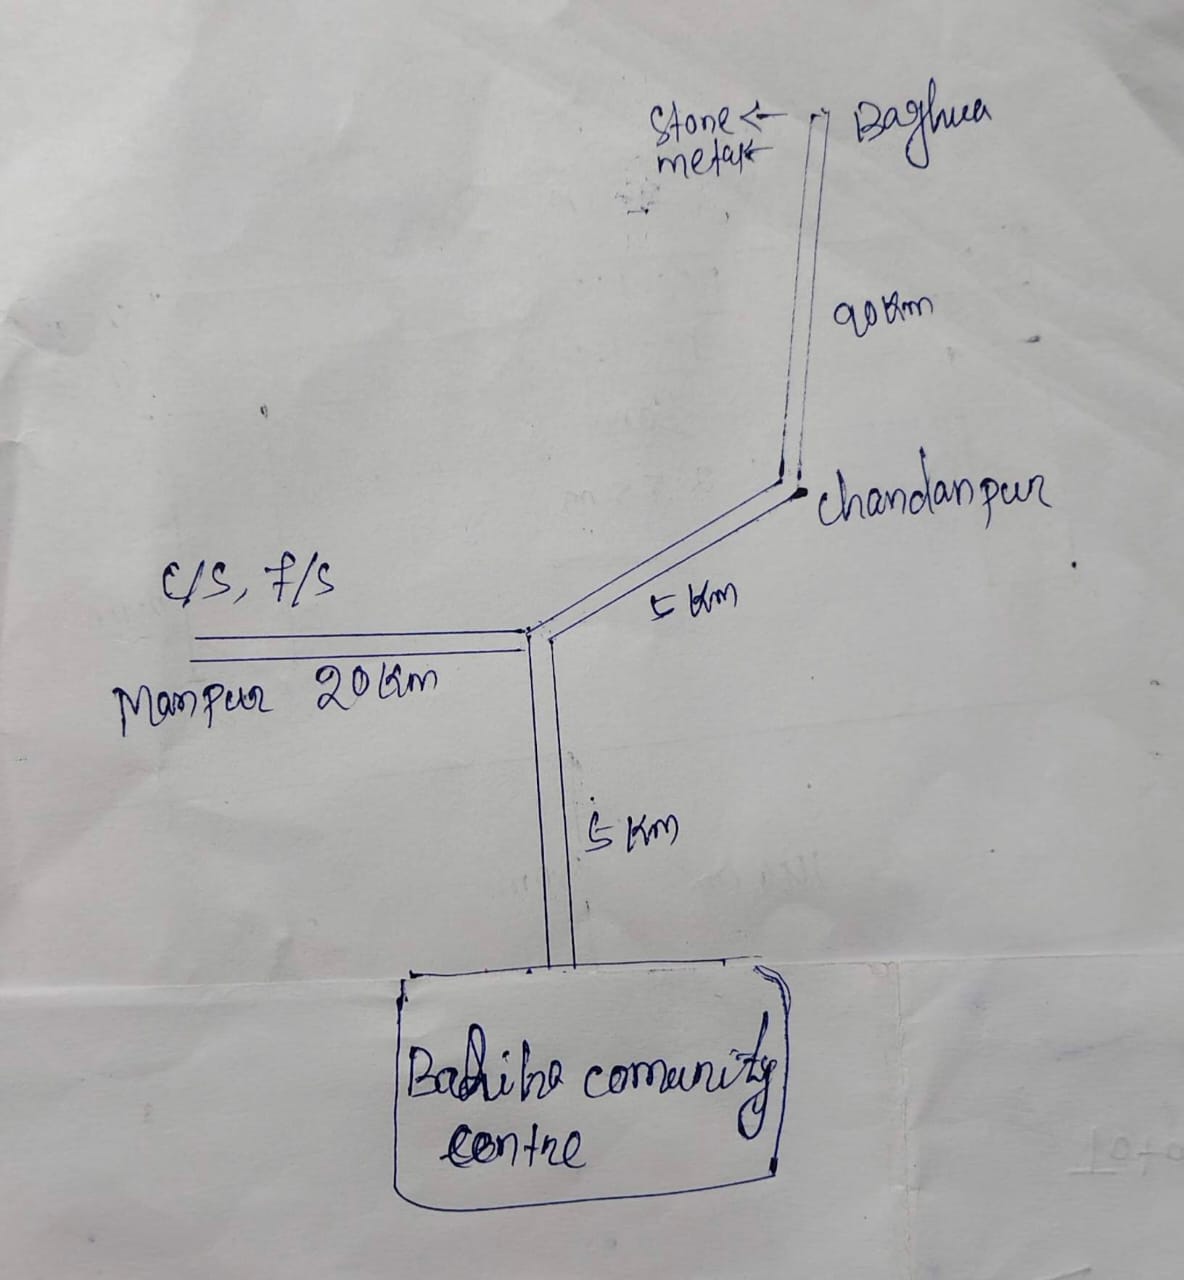 Stone
metal
Baghua
90 Km
Chandanpur
5 Km
C/S, F/S
Manpur 20 Km
5 Km
comunity
centre